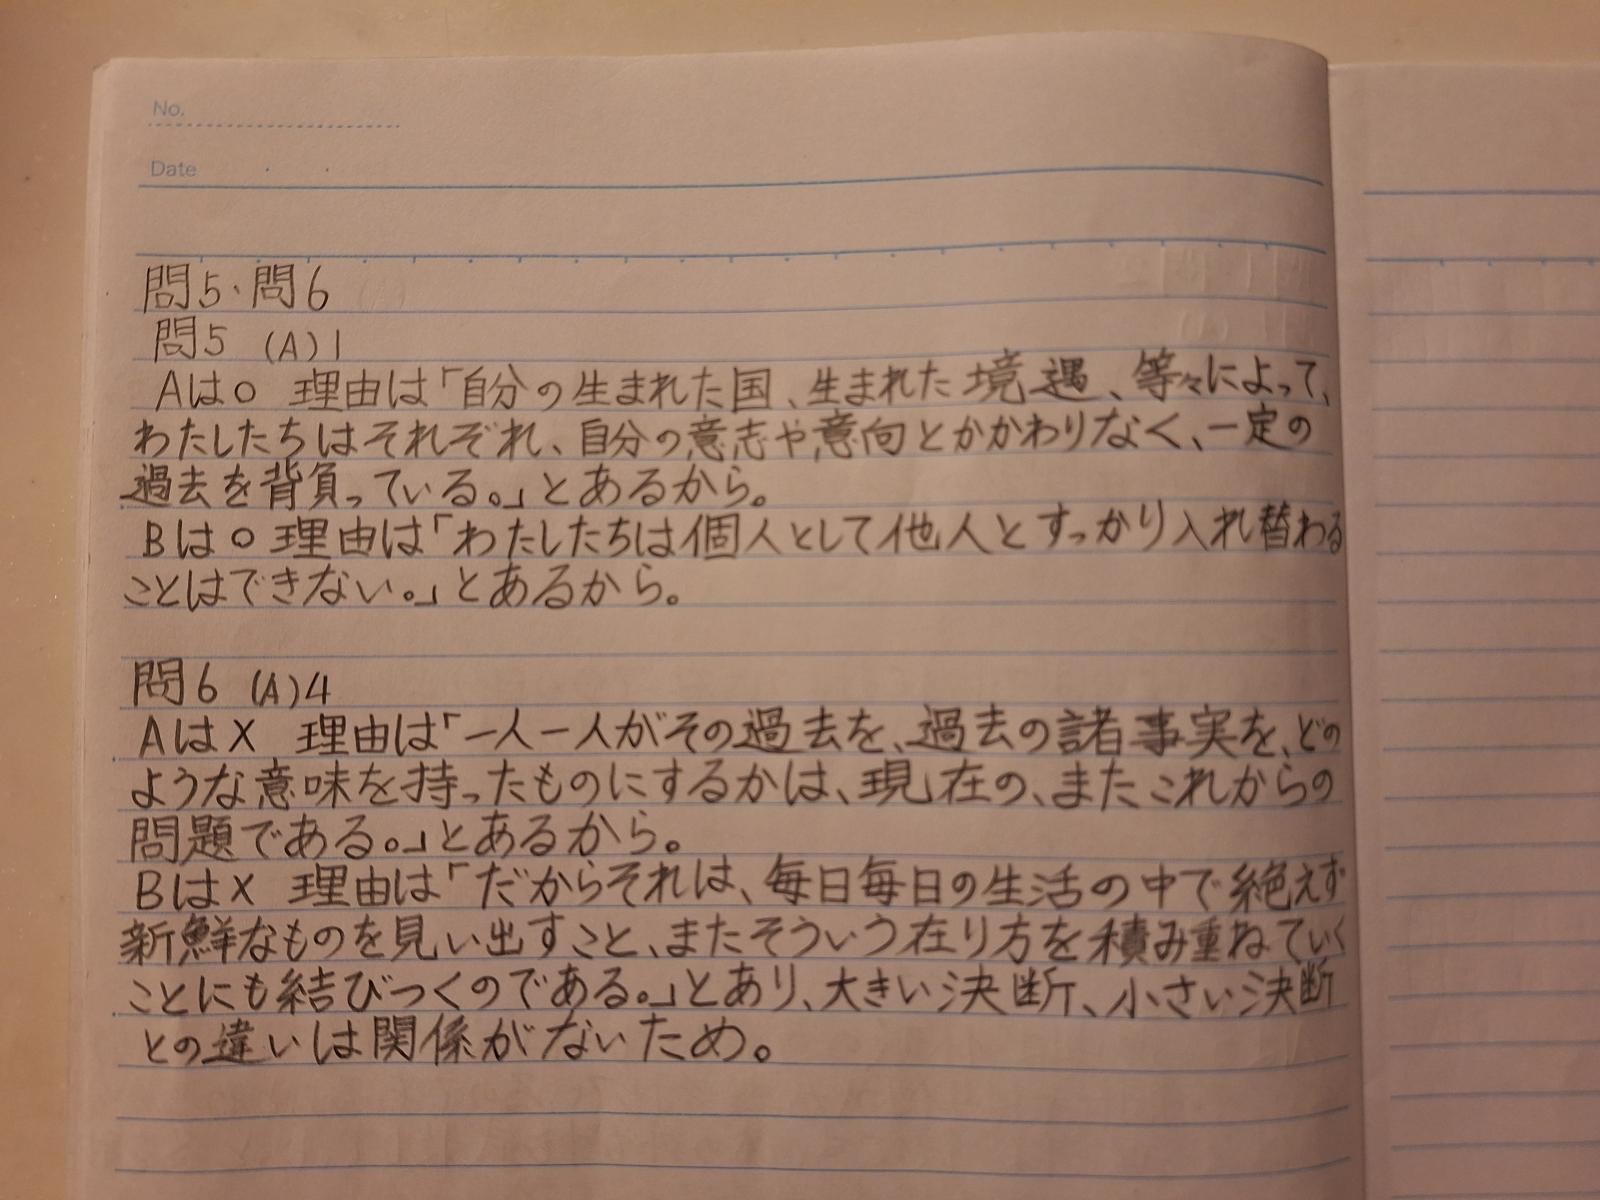 No.
Date
問5・問6
問5 (A)1
Aは○ 理由は「自分の生まれた国、生まれた境遇、等々によって、
わたしたちはそれぞれ、自分の意志や意向とかかわりなく、一定の
過去を背負っている。」とあるから。
Bは○ 理由は「わたしたちは個人として他人とすっかり入れ替わる
ことはできない。」とあるから。
問6 (A)4
Aは× 理由は「一人一人がその過去を、過去の諸事実を、どの
ような意味を持ったものにするかは、現在の、またこれからの
問題である。」とあるから。
Bは× 理由は「だからそれは、毎日毎日の生活の中で絶えず
新鮮なものを見い出すこと、またそういう在り方を積み重ねていく
ことにも結びつくのである。」とあり、大きい決断、小さい決断
との違いは関係がないため。